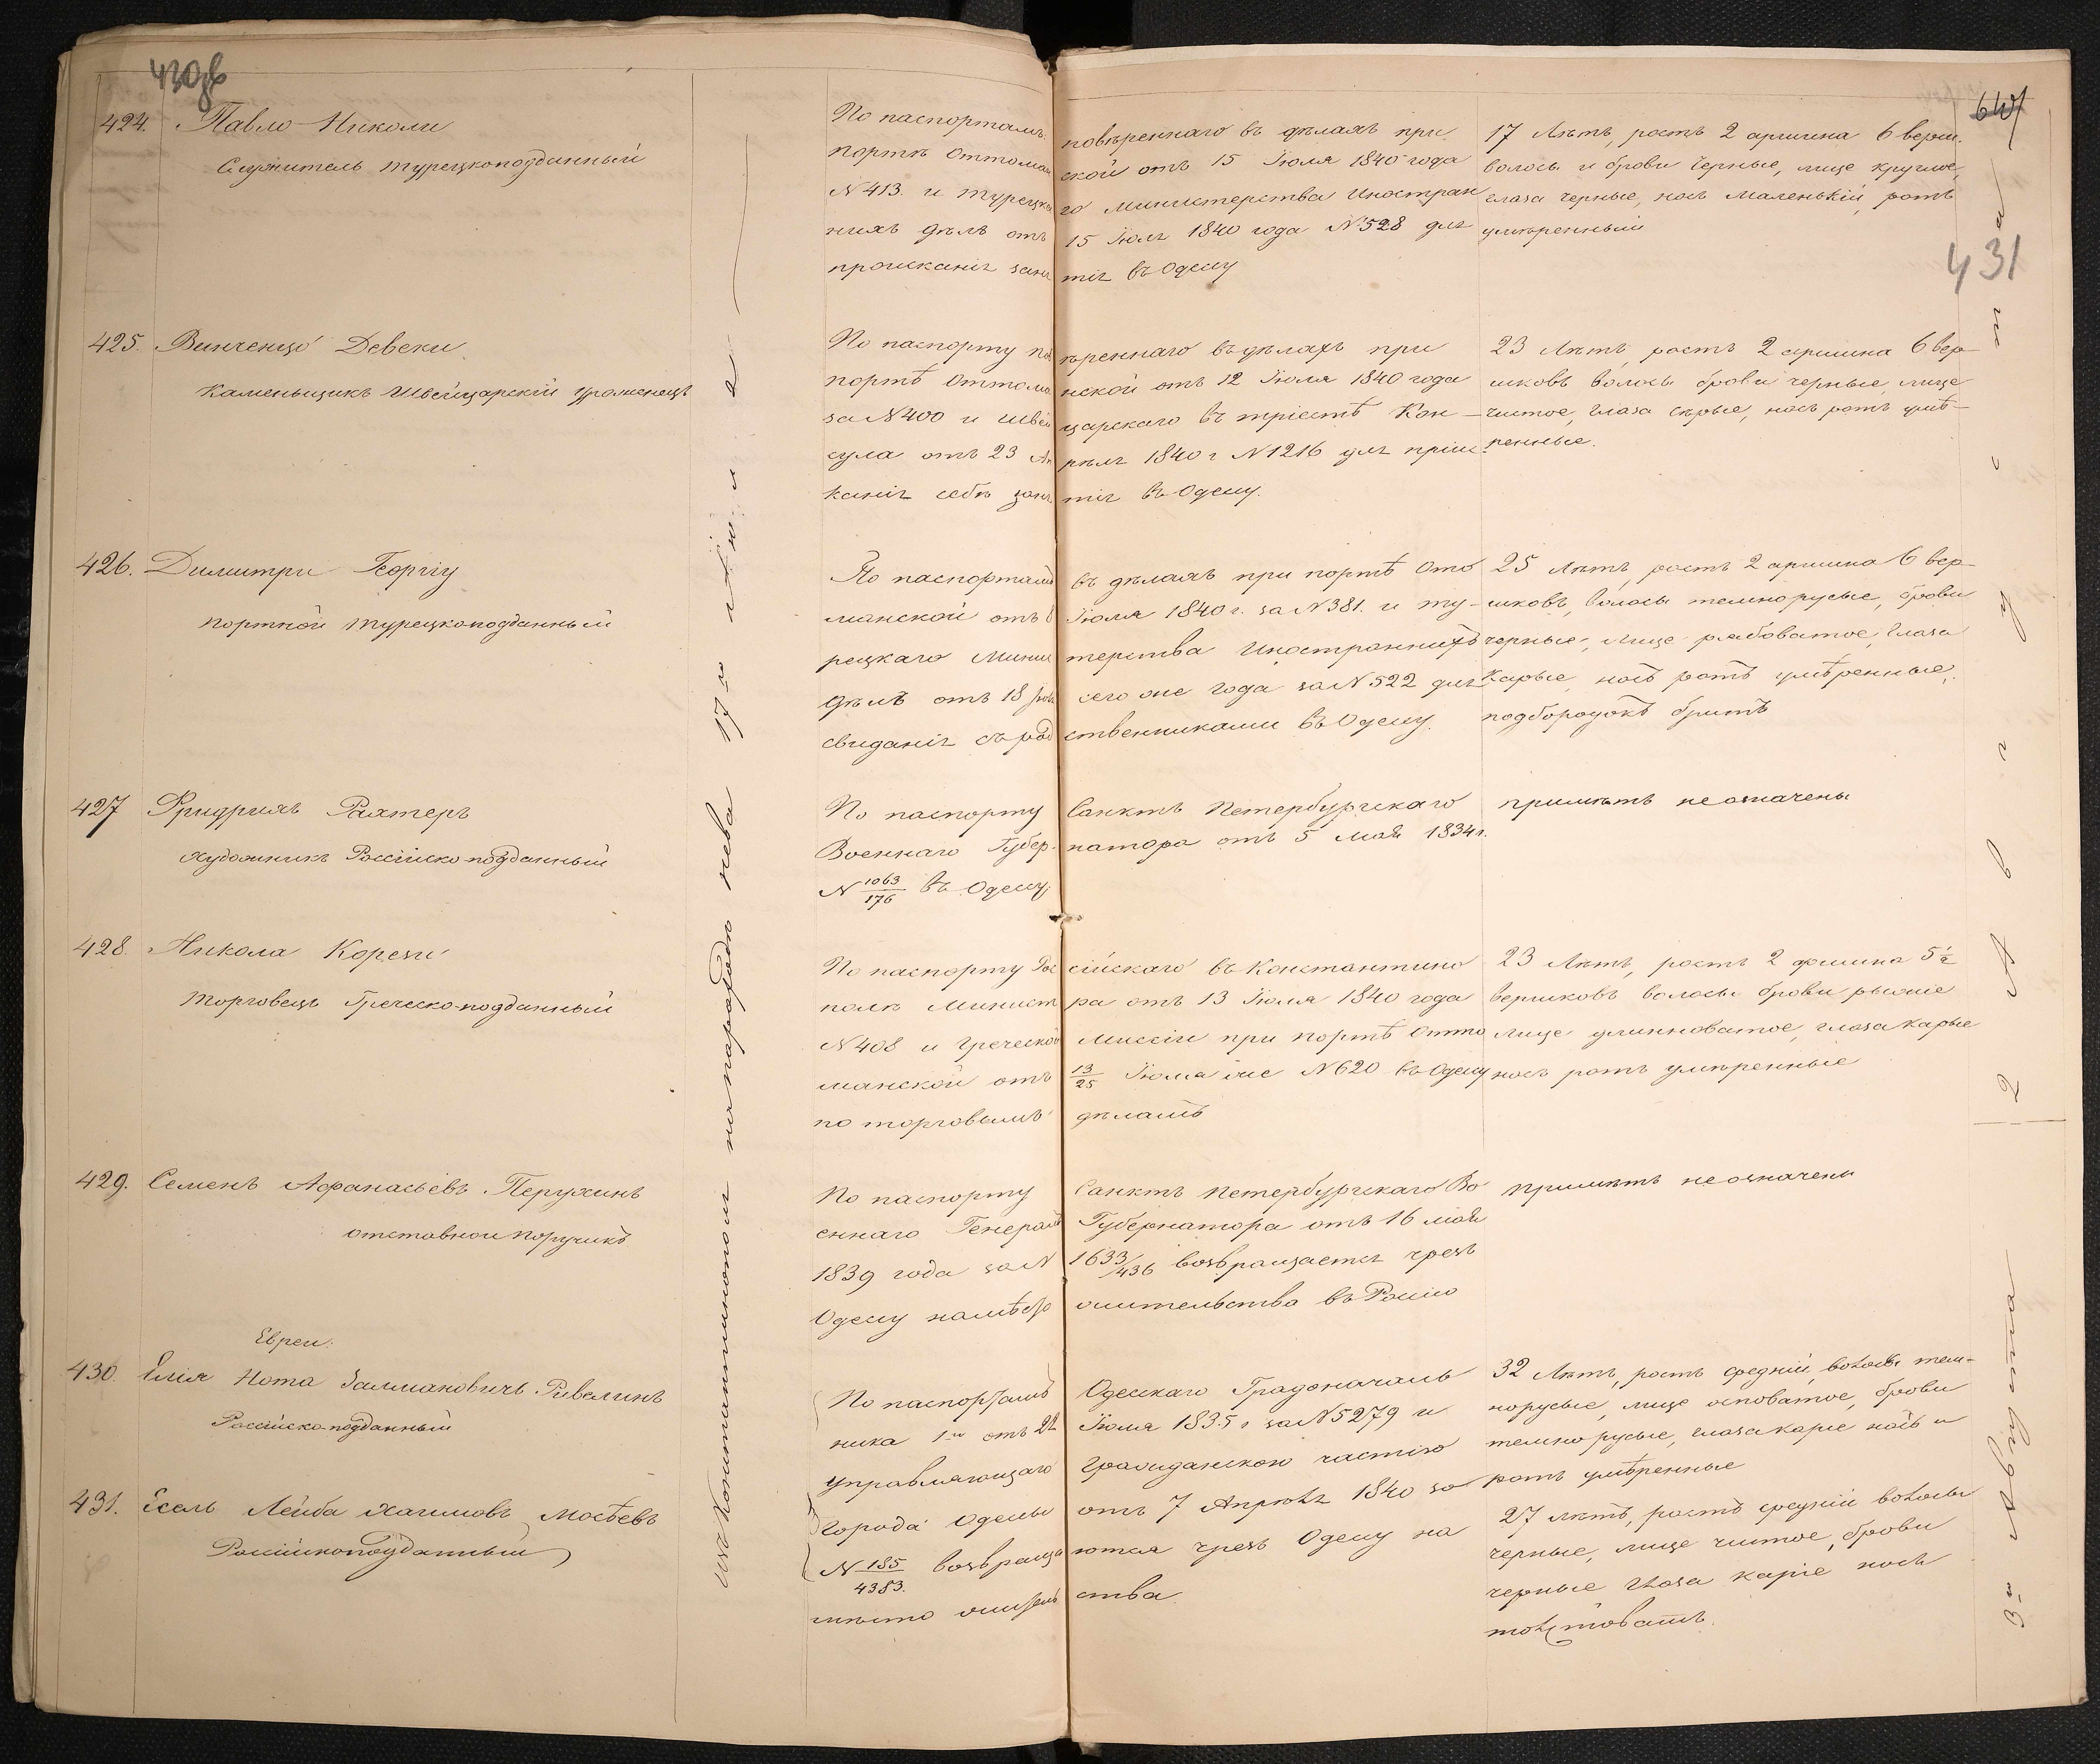 430об
641
431
424. Павло Николи
Служитель турецкоподданный
По паспортамъ повѣреннаго въ дѣлахъ при
портѣ Оттоманской отъ 15 Іюля 1840 года
N 413. и турецкаго министерства Иностран
ныхъ дѣлъ отъ 15 Іюля 1840 года N 528 для
происканія занятія въ Одессу
17 Лѣтъ, ростъ 2 аршина 6 верш.
волосы и брови черные, лице круглое,
глаза черные, носъ маленькій, ротъ
умѣренный
425. Винченцо Девеки
Каменьщикъ Швейцарскій уроженецъ
По паспорту повѣреннаго въ дѣлахъ при
портѣ Оттоманской отъ 12 Іюля 1840 года
за N 400 и швейцарскаго въ тріестѣ Кон-
сула отъ 23 Апрѣля 1840 г N 1216 для пріис-
канія себѣ занятія въ Одессу.
23 Лѣтъ, ростъ 2 аршина 6 вер-
шковъ волосы брови черные, лице
чистое, глаза сѣрые, носъ ротъ умѣ-
ренные.
426. Димитри Георгіу
портной турецкоподданный
По паспортамъ въ дѣлахъ при портѣ Отто
манской отъ 8 Іюля 1840 г. за N 381. и ту-
рецкаго Министерства Иностранныхъ
дѣлъ отъ 18 сего же года за N 522 для
свиданія съ родственниками въ Одессу.
25 Лѣтъ, ростъ 2 аршина 6 вер-
шковъ, волосы темнорусые, брови
черные, лице рябоватое, глаза
карые, носъ ротъ умѣренные,
подбородокъ бритъ
427 Фридрихъ Рахтеръ
Художникъ Россійско-подданный
По паспорту Санктъ Петербургскаго
Военнаго Губернатора отъ 5 Мая 1834 г.
N 1063/176 въ Одессу.
примѣтъ неозначены
428. Никола Корези
Торговецъ Греческо-подданный
По паспорту Россійскаго въ Константино
полѣ Министра отъ 13 Іюля 1840 года
N 408 и Греческой Миссіи при портѣ Отто
манской отъ 13/25 Іюля же N 620 въ Одессу
по торговымъ дѣламъ
23 Лѣтъ, ростъ 2 аршина 5 1/2
вершковъ волосы брови рыжіе
лице длинноватое, глаза карые
носъ ротъ умѣренные
429. Семенъ Афанасьевъ Перухинъ
отставной поручикъ
По паспорту Санктъ Петербургскаго Во
еннаго Генералъ Губернатора отъ 16 мая
1839 года за N 1633/436 возвращается чрезъ
Одессу на мѣсто жительства въ Россію
примѣтъ неозначены
Евреи:
430. Елія Нота Залмановичъ Ривлинъ
Россійско-подданный
431. Ессль Лейба Хаимовъ Мосѣевъ
Россійскоподданный
По паспортамъ Одесскаго Градоначаль
ника 1й отъ 22 Іюля 1835 г за N 5279 и
управляющаго Гражданскою частію
города Одессы отъ 7 Апрѣля 1840 за
N 185/4383. возвращаются чрезъ Одессу на
мѣсто жительства.
32 Лѣтъ, ростъ средній, волосы тем-
норусые, лице осповатое, брови
темнорусые, глаза каріе носъ и
ротъ умѣренные
27 лѣтъ, ростъ средній волосы
черные, лице чистое, брови
черные глаза каріе носъ
толстоватъ.
изъ Константинополя на пароходѣ Нева 17го Іюля
2 Августа
3го Августа